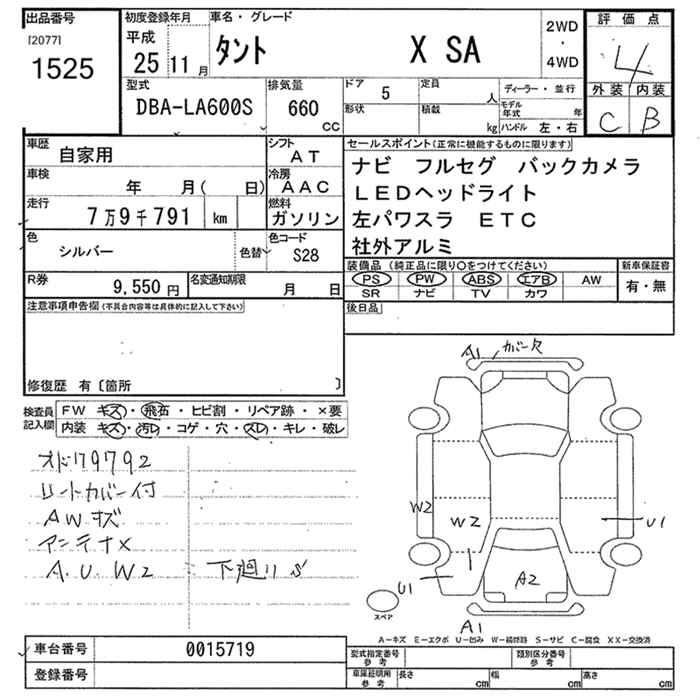 出品番号 初度登録年月 車名・グレード 2WD・4WD 評価点
[2077] 1525 平成 25 11月 タント X SA 4
型式 排気量 ドア 5 定員 人 ディーラー・並行 外装 内装
DBA-LA600S 660 CC 形状 積載 kg モデル年式 年 ハンドル 左・右 C B
車歴 自家用 シフト AT セールスポイント(正常に機能するものに限ります)
車検 年 月( 日) 冷房 AAC ナビ フルセグ バックカメラ
走行 7万9千791 km 燃料 ガソリン LEDヘッドライト
色 シルバー 色替 色コード S28 左パワスラ ETC
社外アルミ
R券 9,550円 名変通知期限 月 日 装備品(純正品に限り○をつけてください) 新車保証書
PS PW ABS エアB AW 有・無
SR ナビ TV カワ
注意事項申告欄(不具合内容等は具体的に記入して下さい) 後日品
修復歴 有〔箇所 〕
検査員記入欄 FW キズ・飛石・ヒビ割・リペア跡・×要
内装 キズ・汚レ・コゲ・穴・スレ・キレ・破レ
オド79792
AWキズ
アンテナ×
A.U.W2 下廻りS
A1 カバー欠
W2
W2
U1
U1
A2
A1
スペア
A-キズ E-エクボ U-凹み W-補修跡 S-サビ C-腐食 XX-交換済
車台番号 0015719 型式指定番号 参考 類別区分番号 参考
登録番号 車庫証明用 参考 長さ cm 幅 cm 高さ cm